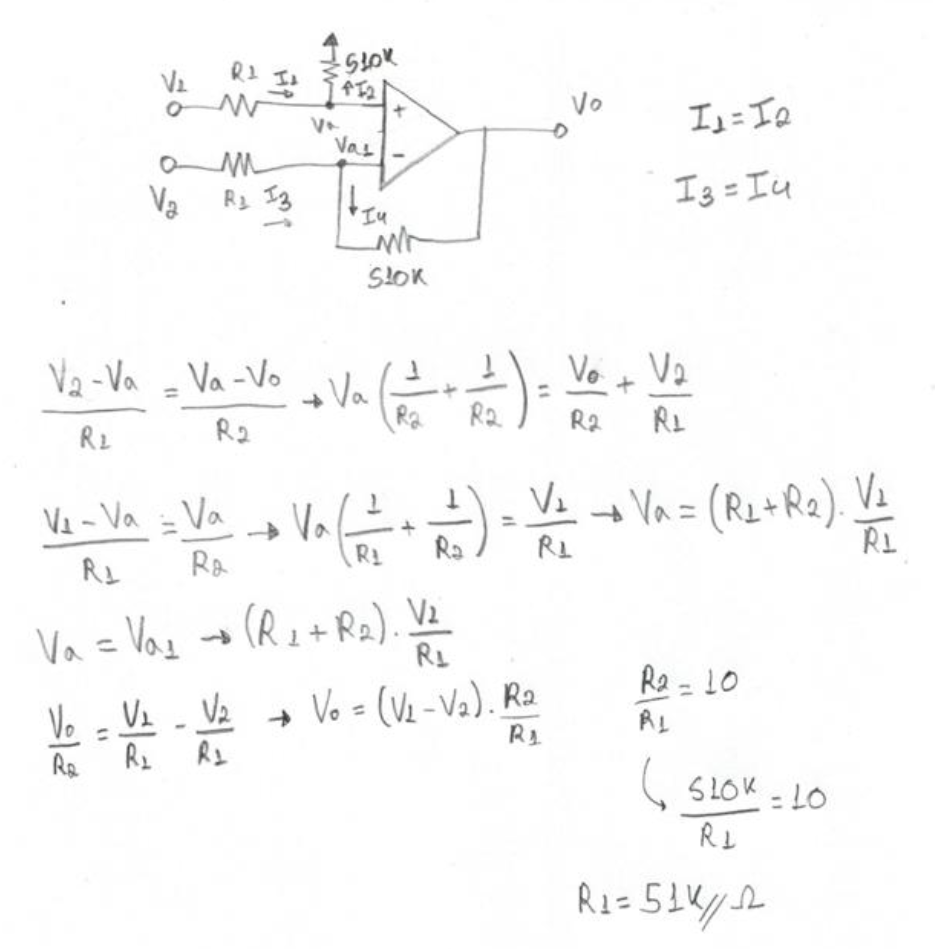 510K
V1 R1 I1 I2 + Vo
Va
I1 = I2
Va1 -
V2 R1 I3 I4
I3 = I4
510K
(V2 - Va)/R1 = (Va - Vo)/R2 → Va (1/R2 + 1/R2) = Vo/R2 + V2/R1
(V1 - Va)/R1 = Va/R2 → Va (1/R1 + 1/R2) = V1/R1 → Va = (R1 + R2) . V1/R1
Va = Va1 → (R1 + R2) . V1/R1
Vo/R2 = V1/R1 - V2/R1 → Vo = (V1 - V2) . R2/R1
R2/R1 = 10
510K/R1 = 10
R1 = 51K// Ω